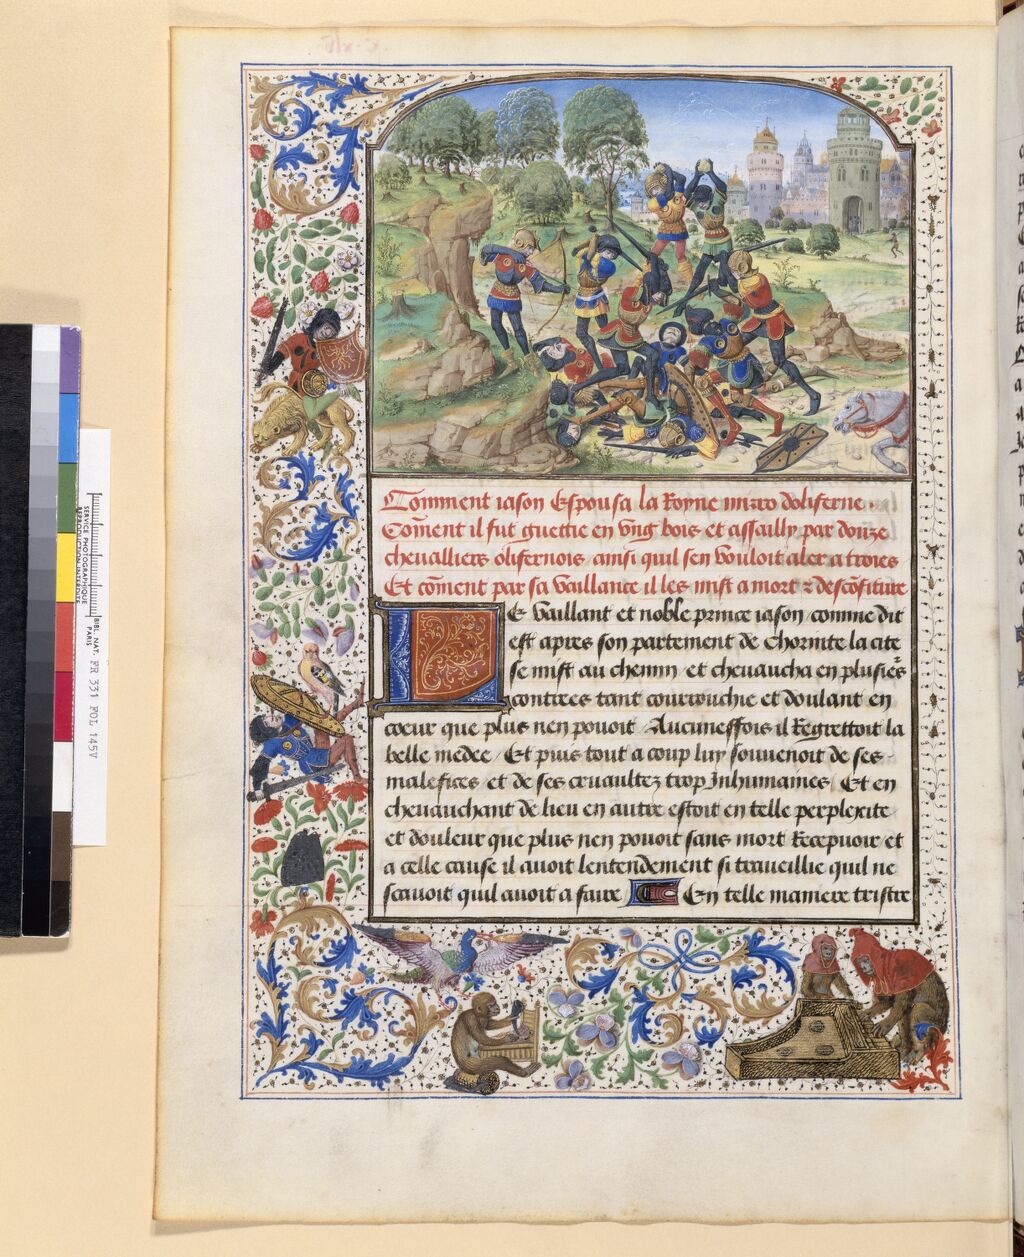 Comment iason Espousa la Royne mirro doliferne.
Cōment il fut guettie en Vng bois et assailly par douze
cheualliers olifernois ainsi quil sen Vouloit aler a troies
Et cōment par sa Vaillance il les mist a mort ⁊ descōfiture
LE Vaillant et noble prince iason comme dit
est apres son partement de Chorinte la cite
se mist au chemin et cheuaucha en plusie͛s
contrees tant courrouchie et doulant en
coeur que plus nen pouoit / Aucuneffois il Regrettoit la
belle medee / Et puis tout a coup luy souuenoit de ses
malefices et de ses cruaultez trop Inhumaines / Et en
cheuauchant de lieu en autre estoit en telle perplexite
et douleur que plus nen pouoit sans mort Recepuoir / et
a celle cause il auoit lentendement si traueillie quil ne
scauoit quil auoit a faire / En telle maniere tristre
BIBL. NAT. FR 331 FOL 145V
PARIS
SERVICE PHOTOGRAPHIQUE
REPRODUCTION INTERDITE